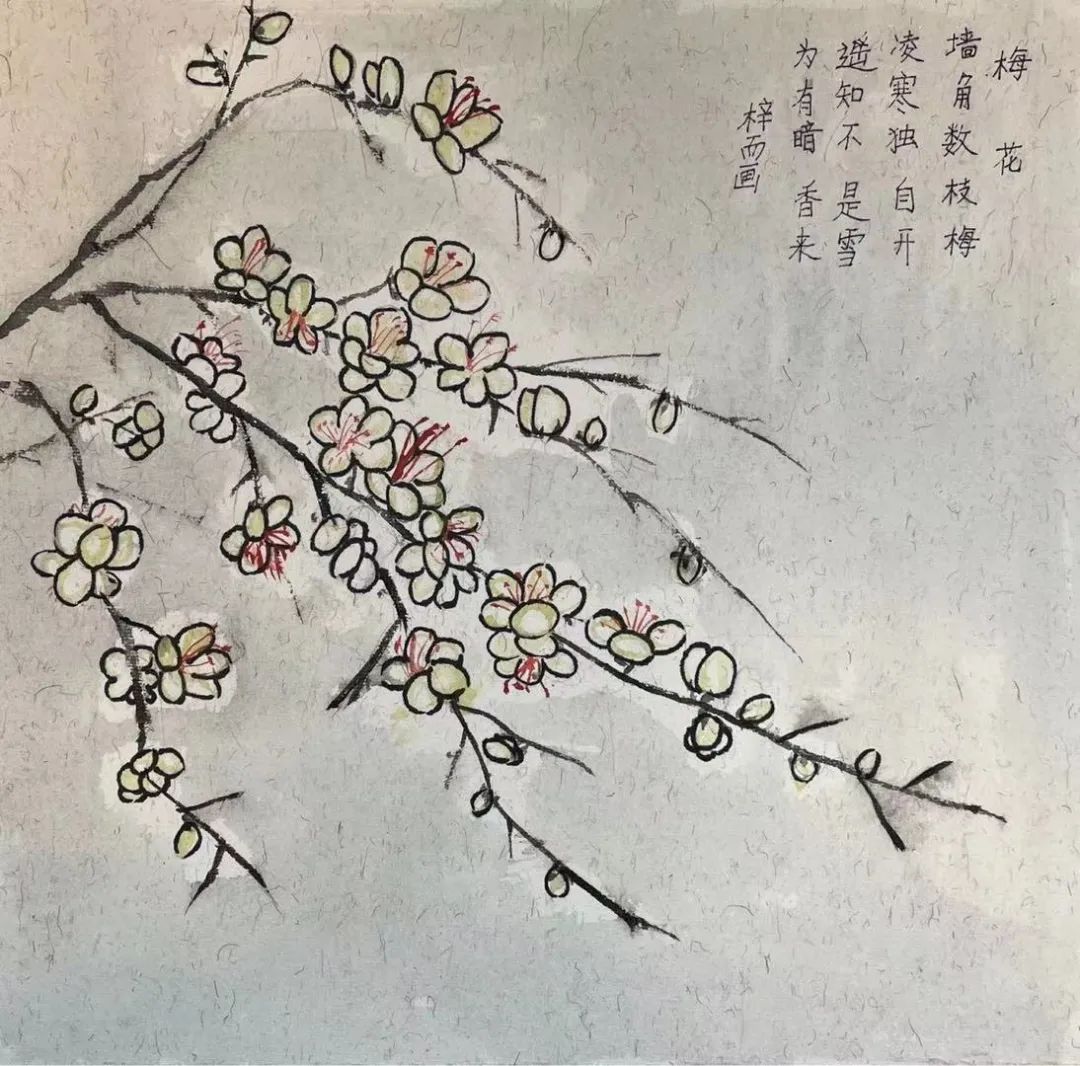 梅花
墙角数枝梅
凌寒独自开
遥知不是雪
为有暗香来
梓而画